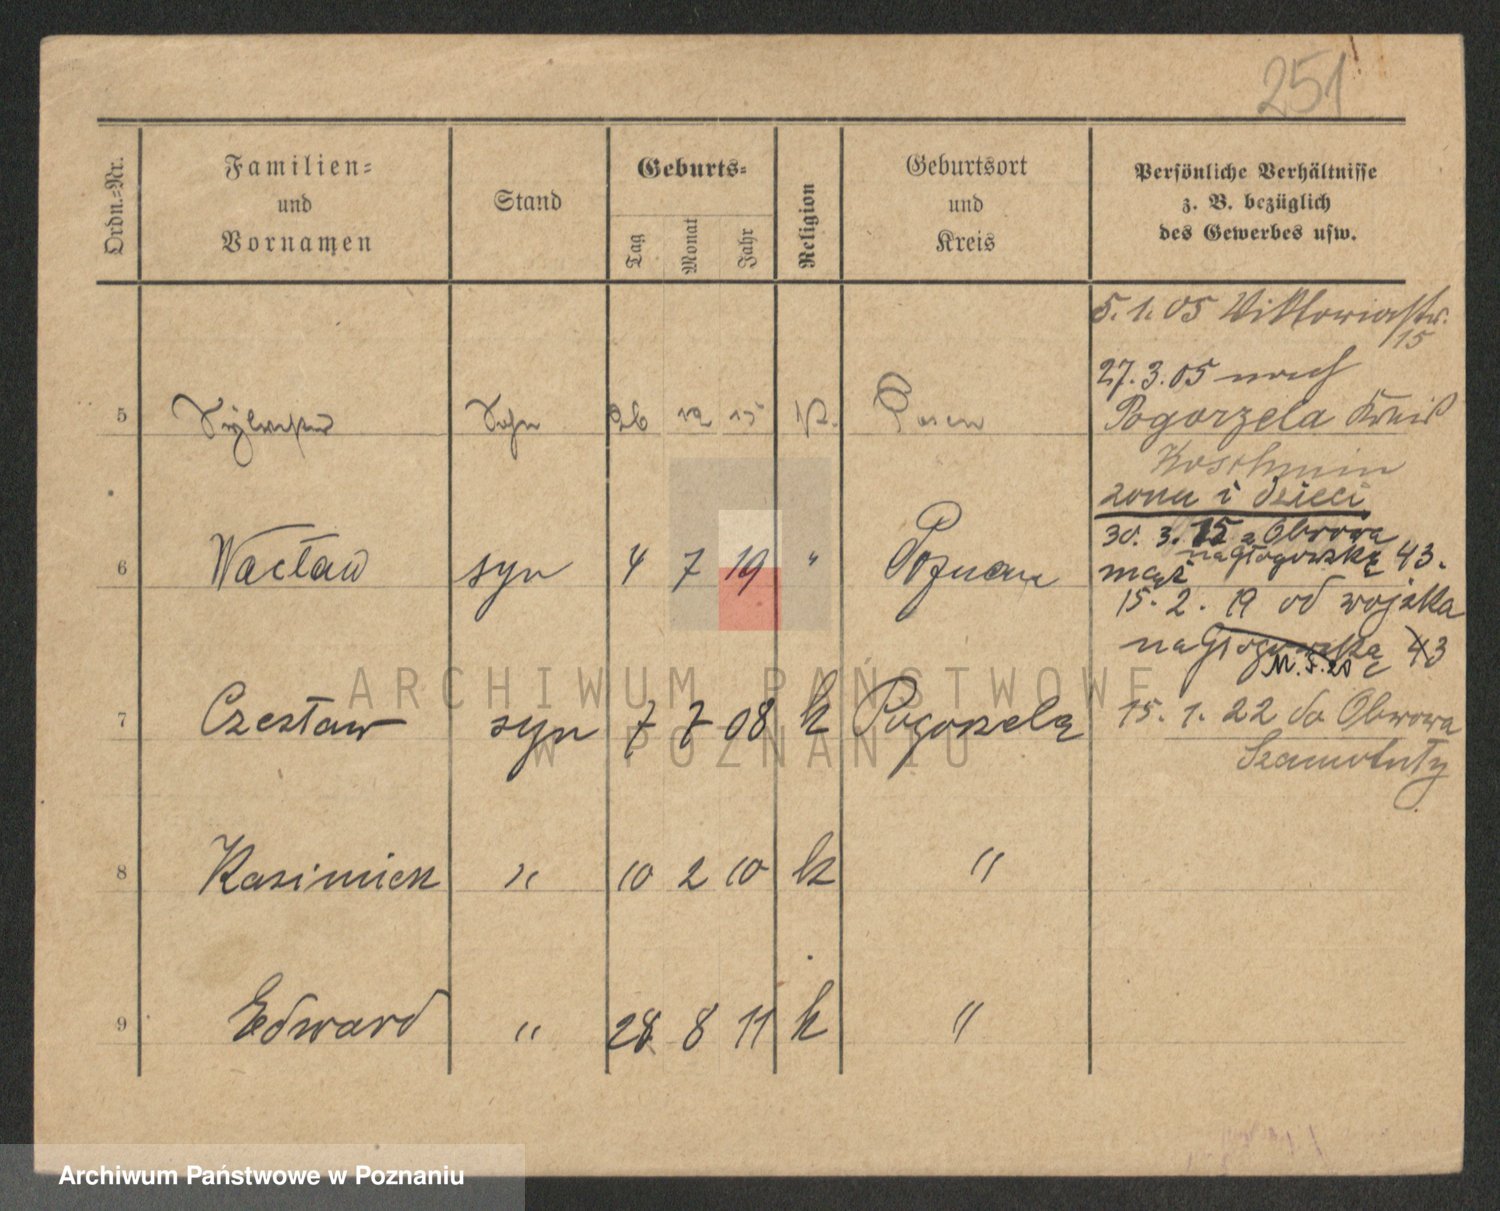 251
Ordn.-Nr.
Familien-
und
Vornamen
Stand
Geburts-
Tag
Monat
Jahr
Religion
Geburtsort
und
Kreis
Persönliche Verhältnisse
z. B. bezüglich
des Gewerbes usw.
5.1.05 Viktoriastr.
15
27.3.05 nach
5 Sylvester Sohn 26 12 15 K. Posen
Pogorzela Kreis
Koschmin
żona i dzieci
30. 3. 15 z Obwowa
na Głogowską 43.
6 Wacław syn 4 7 19 " Poznań
mąż
15. 2. 19 od wojska
na Głogowską 43
7 Czesław syn 7 7 08 k Pogorzelą
15. 1. 22 do Obwowa
Szamotuły
8 Kasimierz " 10 2 10 k "
9 Edward " 28 8 11 k "
ARCHIWUM PAŃSTWOWE
W POZNANIU
Archiwum Państwowe w Poznaniu